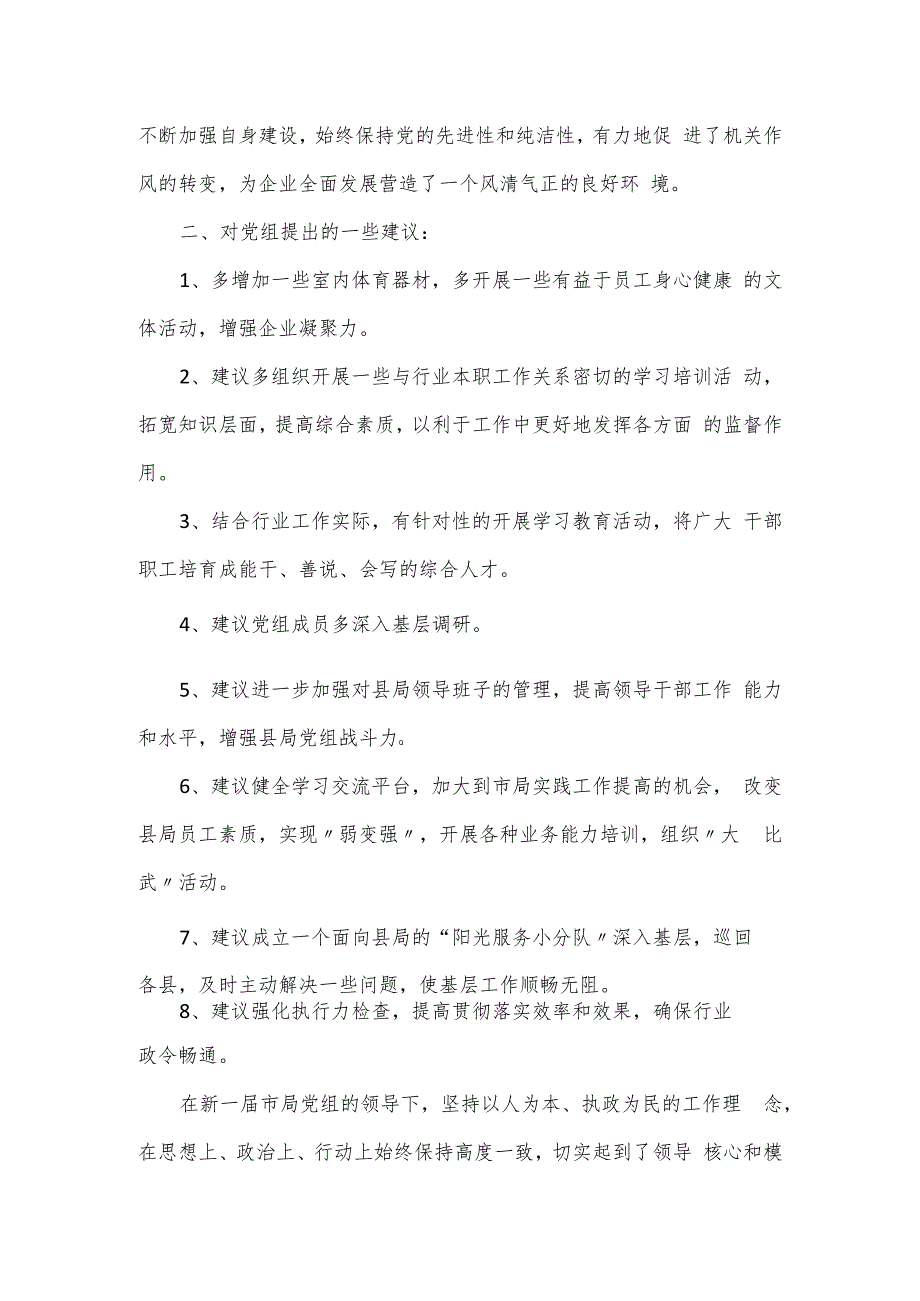 不断加强自身建设，始终保持党的先进性和纯洁性，有力地促 进了机关作
风的转变，为企业全面发展营造了一个风清气正的良好环 境。
二、对党组提出的一些建议：
1、多增加一些室内体育器材，多开展一些有益于员工身心健康 的文
体活动，增强企业凝聚力。
2、建议多组织开展一些与行业本职工作关系密切的学习培训活 动，
拓宽知识层面，提高综合素质，以利于工作中更好地发挥各方面 的监督作
用。
3、结合行业工作实际，有针对性的开展学习教育活动，将广大 干部
职工培育成能干、善说、会写的综合人才。
4、建议党组成员多深入基层调研。
5、建议进一步加强对县局领导班子的管理，提高领导干部工作 能力
和水平，增强县局党组战斗力。
6、建议健全学习交流平台，加大到市局实践工作提高的机会， 改变
县局员工素质，实现〃弱变强〃，开展各种业务能力培训，组织〃大 比
武〃活动。
7、建议成立一个面向县局的“阳光服务小分队〃深入基层，巡回
各县，及时主动解决一些问题，使基层工作顺畅无阻。
8、建议强化执行力检查，提高贯彻落实效率和效果，确保行业
政令畅通。
在新一届市局党组的领导下，坚持以人为本、执政为民的工作理 念，
在思想上、政治上、行动上始终保持高度一致，切实起到了领导 核心和模